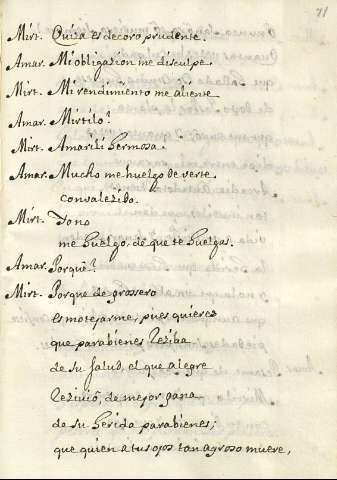 71
Mirt. Quiza es decoro prudente.
Amar. Mi obligasion me disculpe.
Mirt. Mi rendimiento me aliente.
Amar. Mirtilo?
Mirt. Amarili hermosa.
Amar. Mucho me huelgo de verte
convalezido.
Mirt. Yo no
me huelgo, de que te huelgas.
Amar. Porquè?
Mirt. Porque de grossero
es motejarme, pues quieres
que parabienes reziba
de su salud, el que alegre
rezivió, de mejor gana
de su herida parabienes;
que quien á tus ojos tan agroso muere,